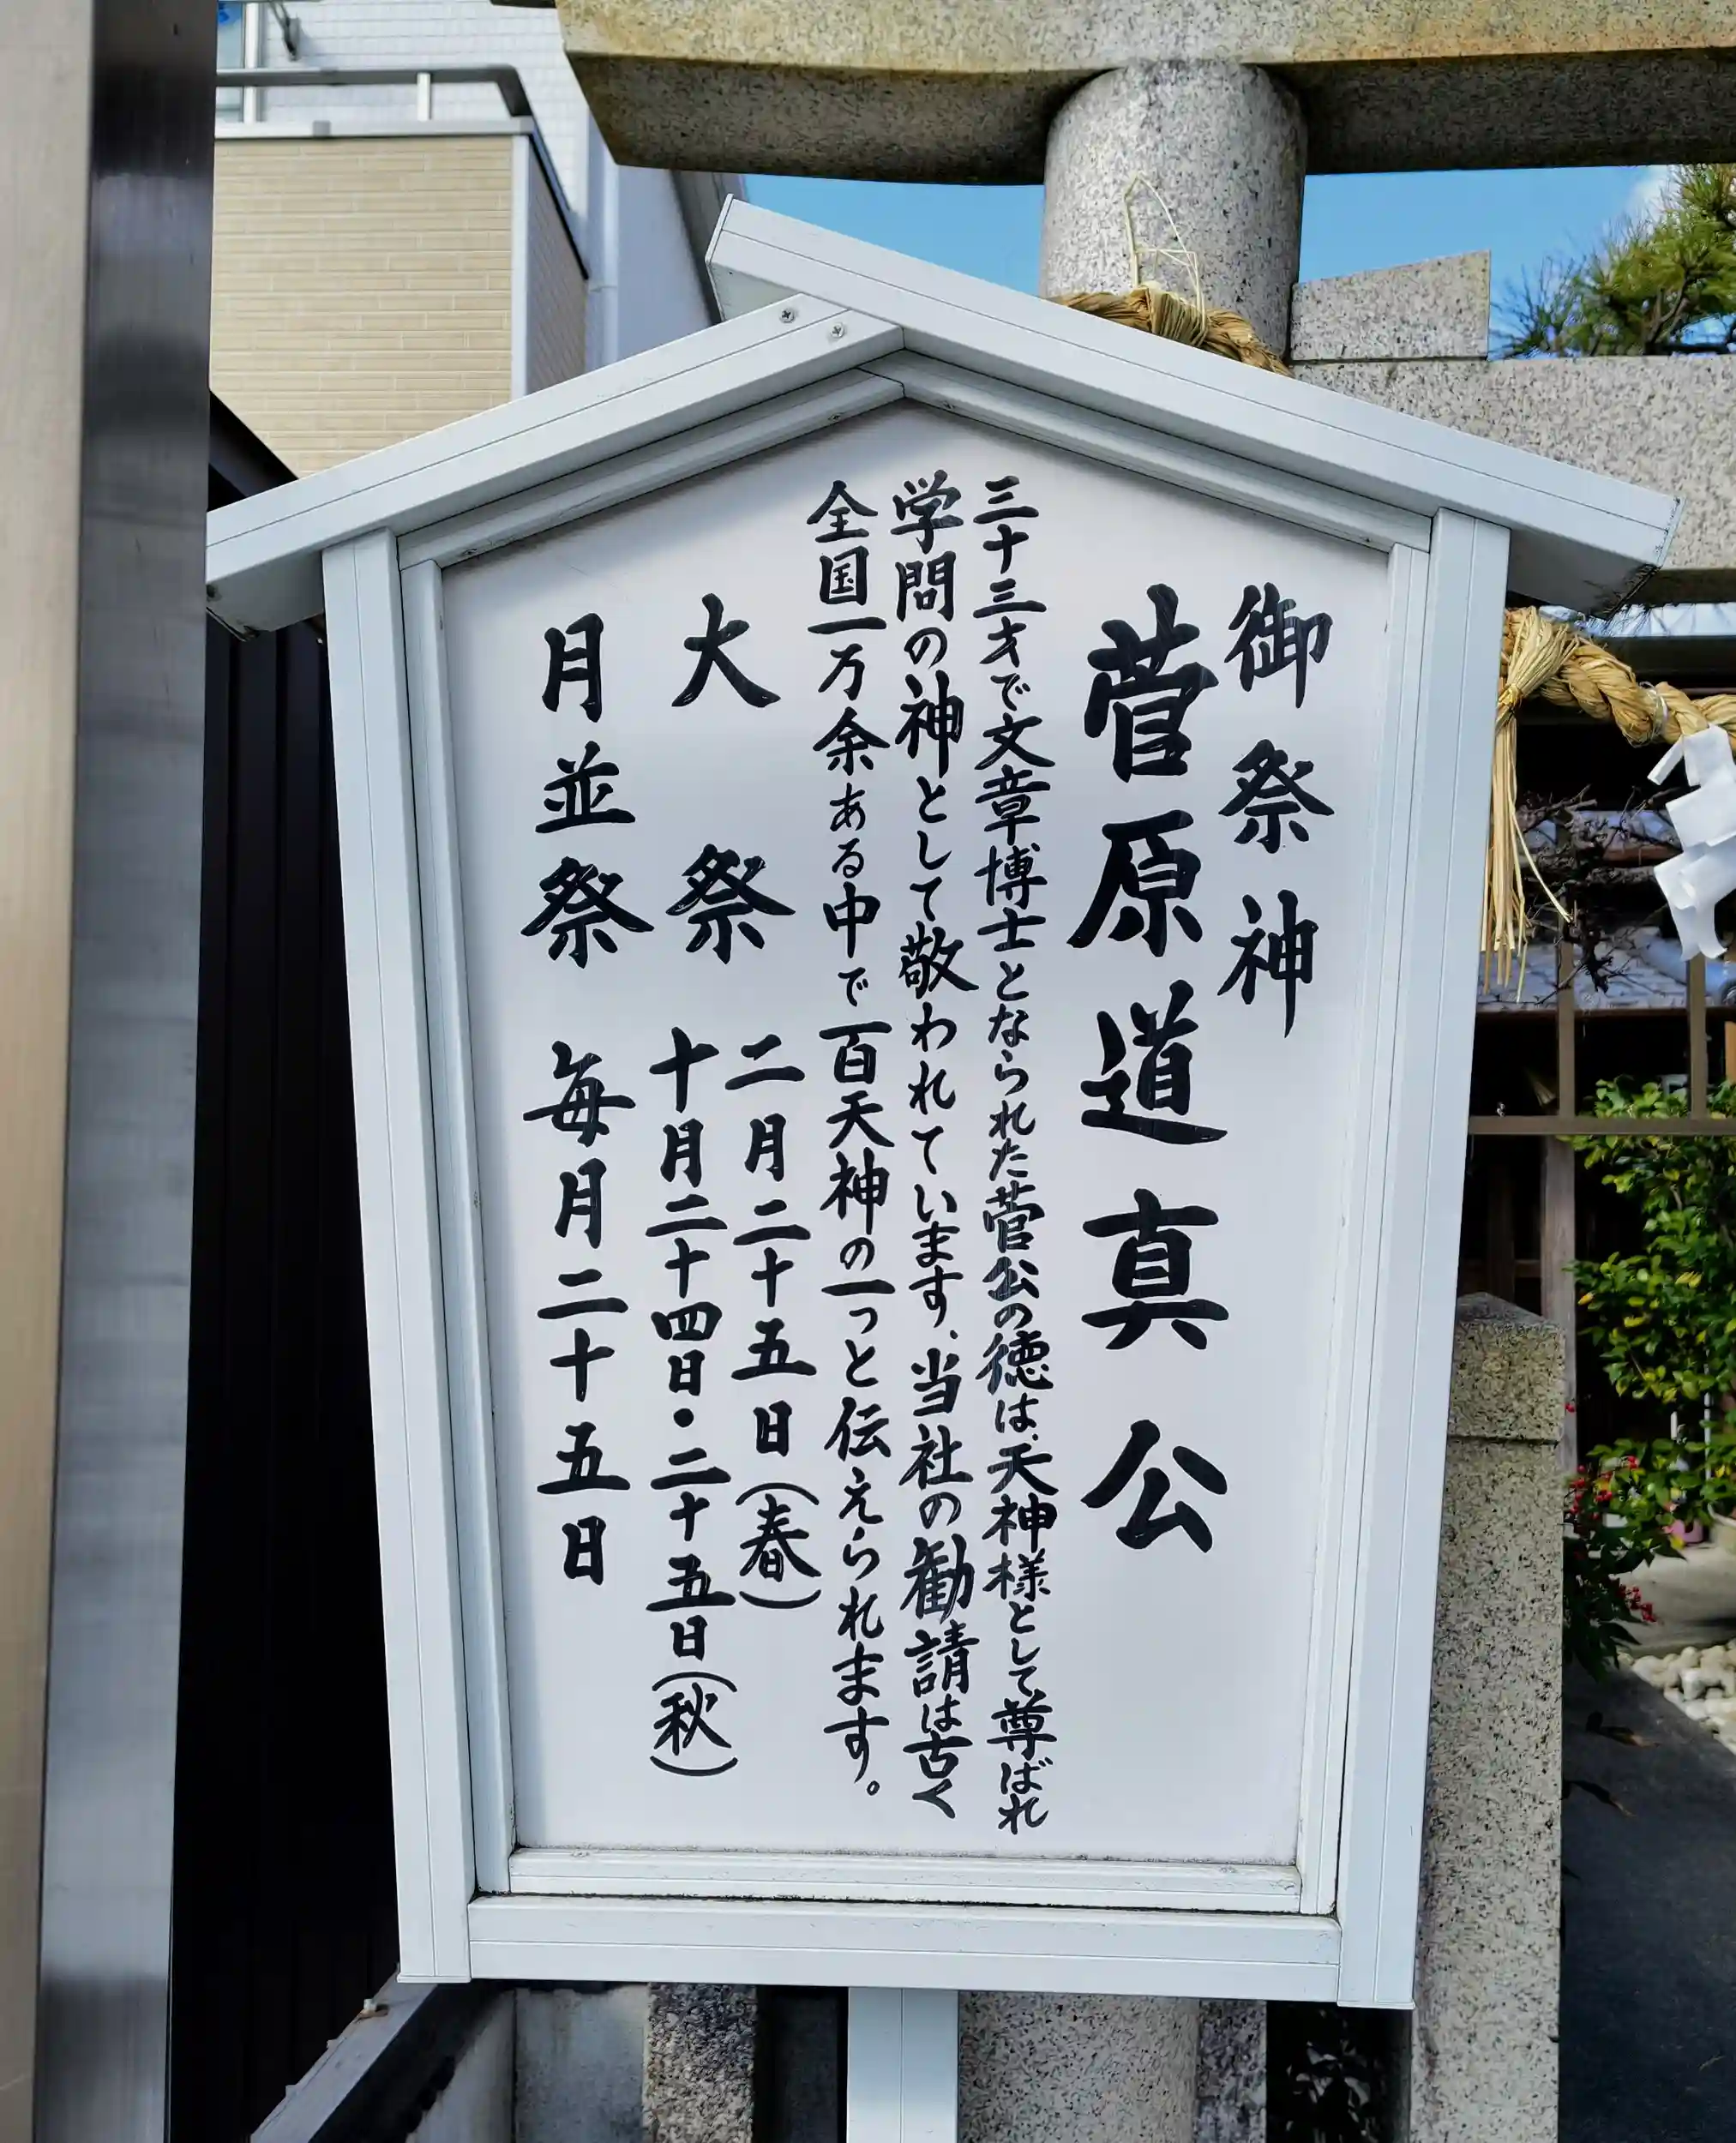 御祭神
菅原道真公
三十三才で文章博士となられた菅公の徳は、天神様として尊ばれ
学問の神として敬われています、当社の勧請は古く
全国一万余ある中で百天神の一つと伝えられます。
大祭
二月二十五日(春)
十月二十四日・二十五日(秋)
月並祭 毎月二十五日